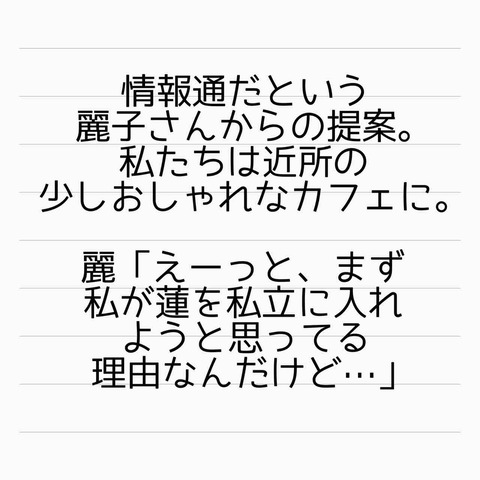 情報通だという
麗子さんからの提案。
私たちは近所の
少しおしゃれなカフェに。
麗「えーっと、まず
私が蓮を私立に入れ
ようと思ってる
理由なんだけど…」